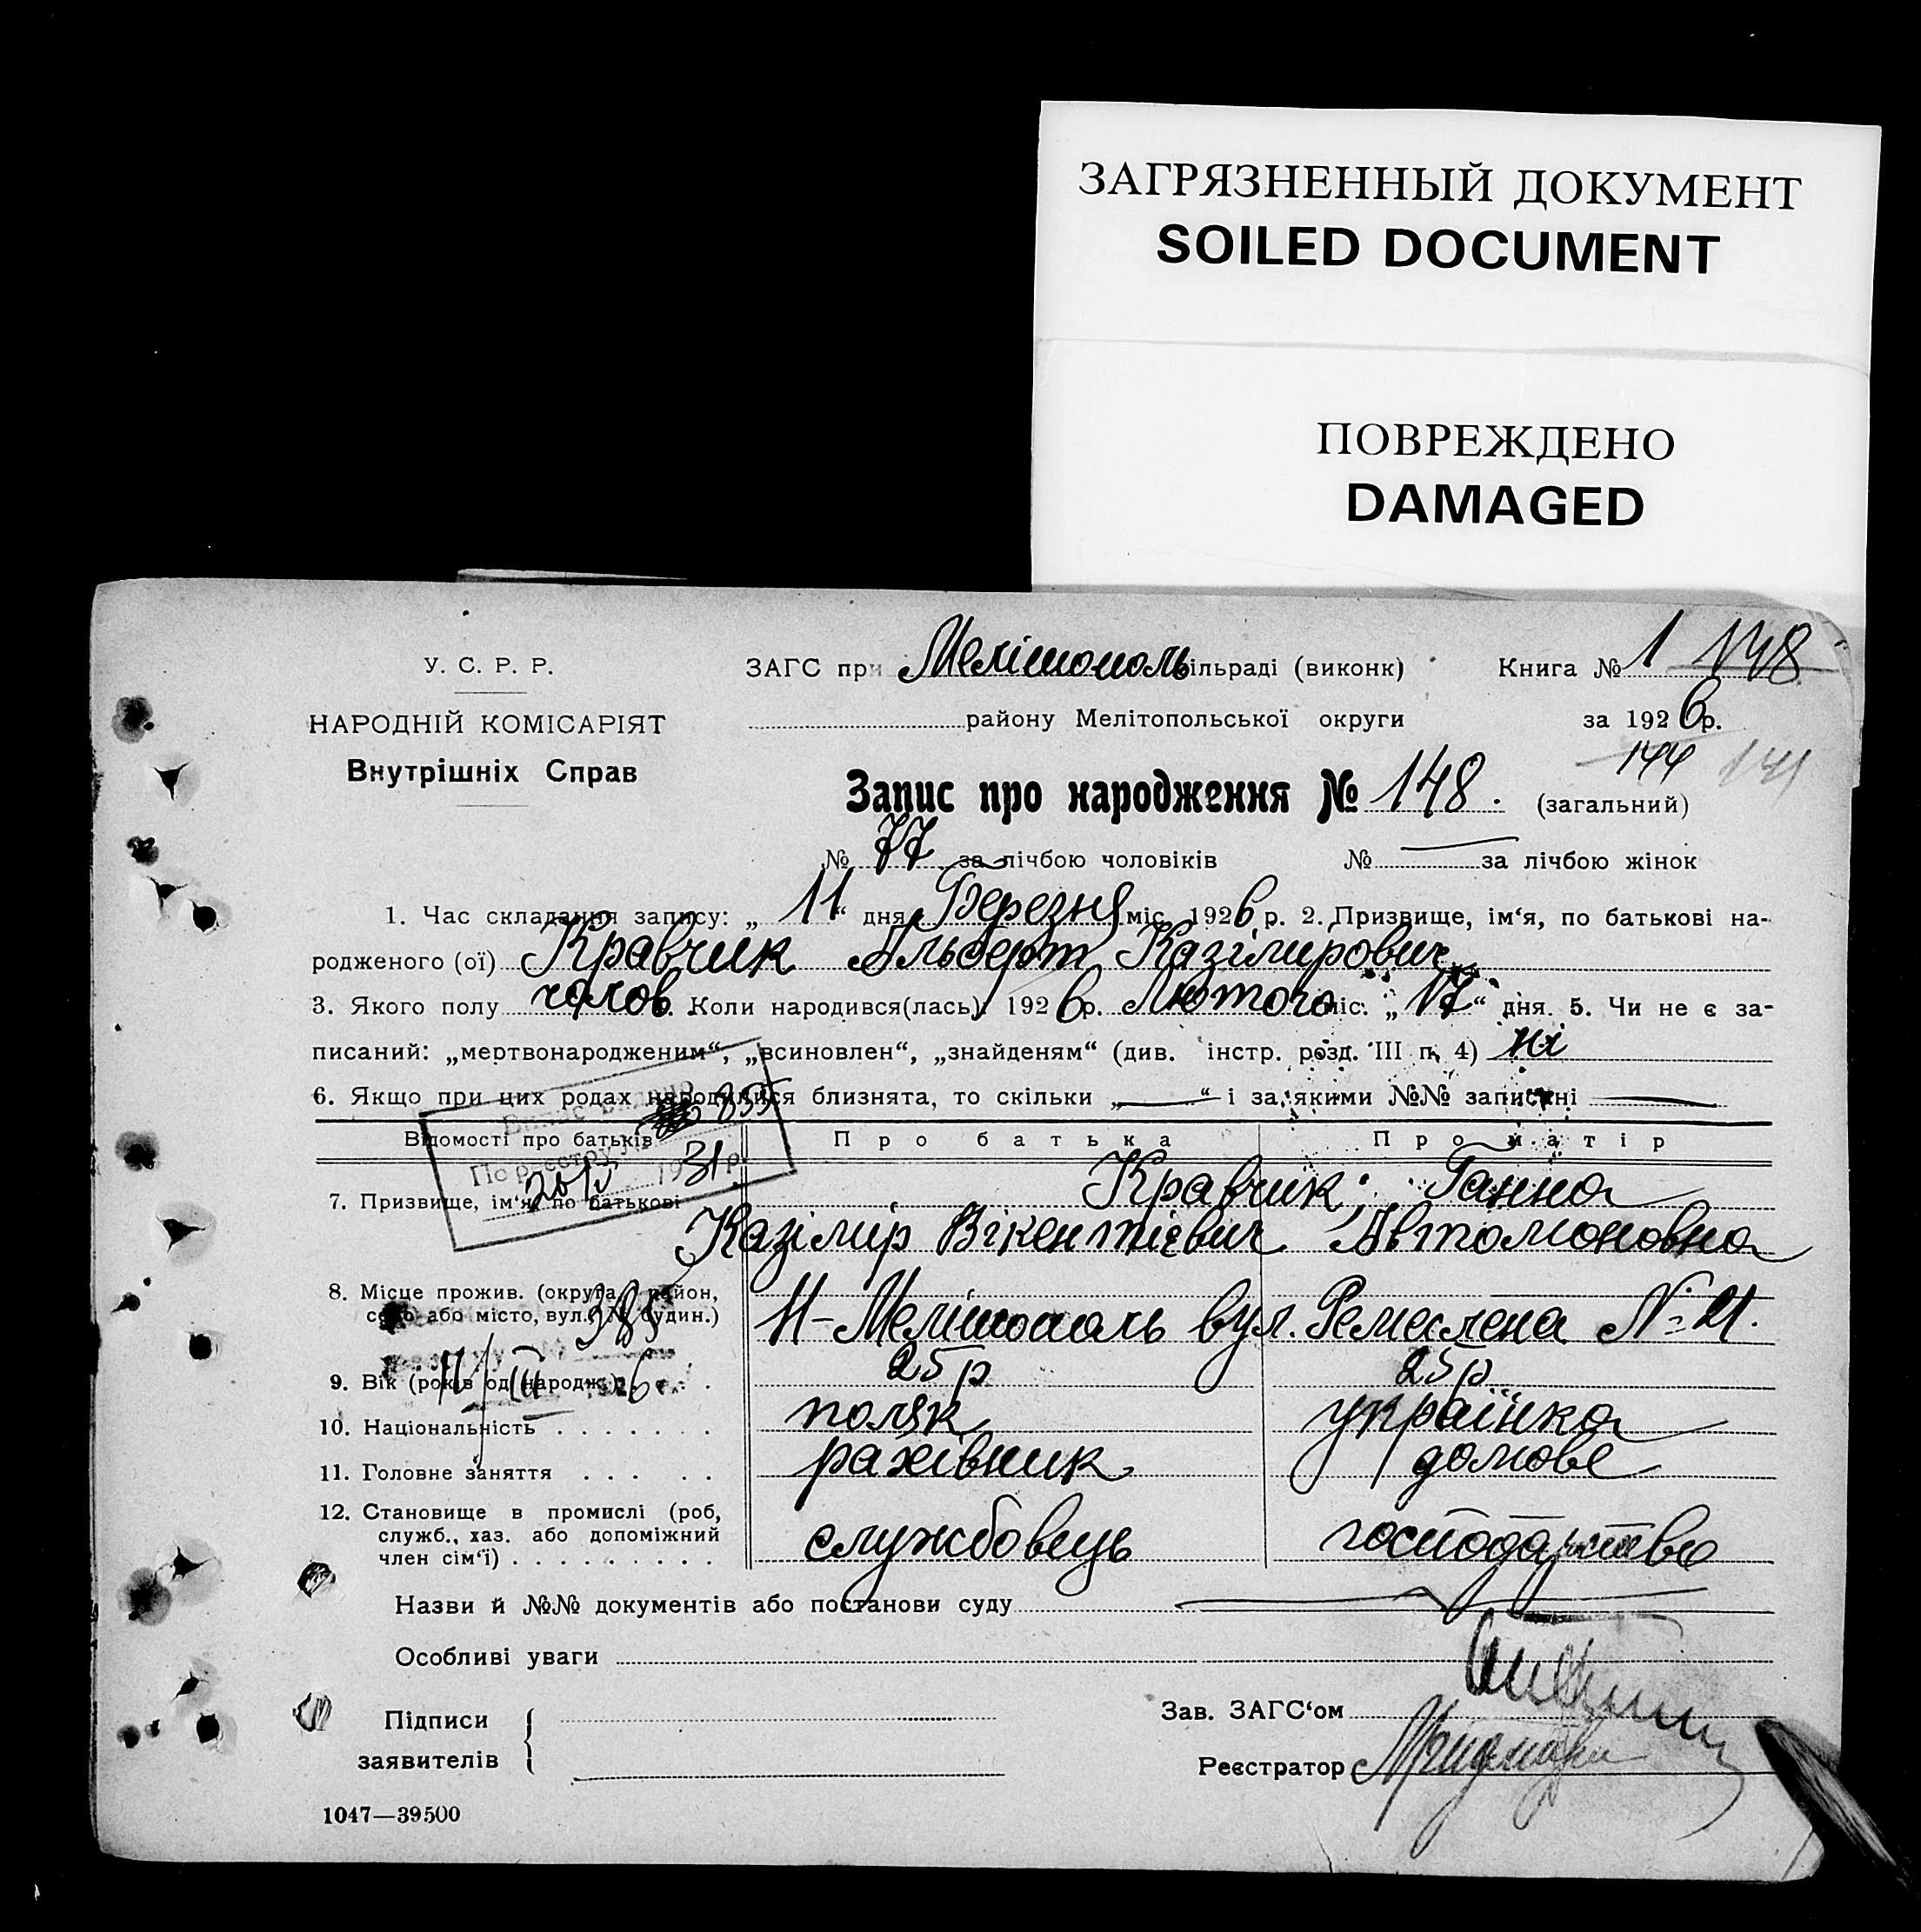 ЗАГРЯЗНЕННЫЙ ДОКУМЕНТ
SOILED DOCUMENT
ПОВРЕЖДЕНО
DAMAGED
У. С. Р. Р.
НАРОДНІЙ КОМІСАРІЯТ
Внутрішніх Справ
ЗАГС при Мелітополь ільраді (виконк)
Книга № 1 148
району Мелітопольської округи
за 1926 р.
144 141
Запис про народження № 148. (загальний)
№ 77 за лічбою чоловіків № — за лічбою жінок
1. Час складання запису: „ 11 “ дня Березня міс. 1926 р. 2. Призвище, ім‘я, по батькові на-
родженого (ої) Кравчик Альберт Казімирович
3. Якого полу чолов. Коли народився(лась): 1926 р. Лютого міс. „ 17 “ дня. 5. Чи не є за-
писаний: „мертвонародженим“, „всиновлен“, „знайденям“ (див. інстр. розд. III п. 4) ні
6. Якщо при цих родах народилися близнята, то скільки „ — “ і за якими №№ записані —
Випис видано
855
По реєстру №
1931 р.
Відомості про батьків
Про батька
Про матір
7. Призвище, ім‘я, по батькові
Кравчик Ганна
Казімір Вікентієвич Автомоновна
8. Місце прожив. (округа, район,
село або місто, вул. № будин.)
385
М-Мелітополь вул. Ремеслена № 21.
11/III 1926 р.
9. Вік (років од народж.) 25 р 25 р
10. Національність поляк українка
11. Головне заняття рахівник домове
12. Становище в промислі (роб,
служб., хаз. або допоміжний
член сім‘ї)
службовець господарство
Назви й №№ документів або постанови суду
Особливі уваги
Підписи
заявителів
Зав. ЗАГС‘ом
Реєстратор
1047—39500